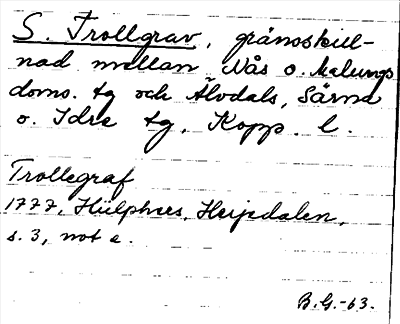 S. Trollgrav, gränsskul-
nad mellan Nås o. Malungs
doms. tg och Älvdals, Särna
o. Idre tg, Kopp. l.
Trollegraf
1777, Hülphers, Herjedalen,
s. 3, not e.
B.G.-63.